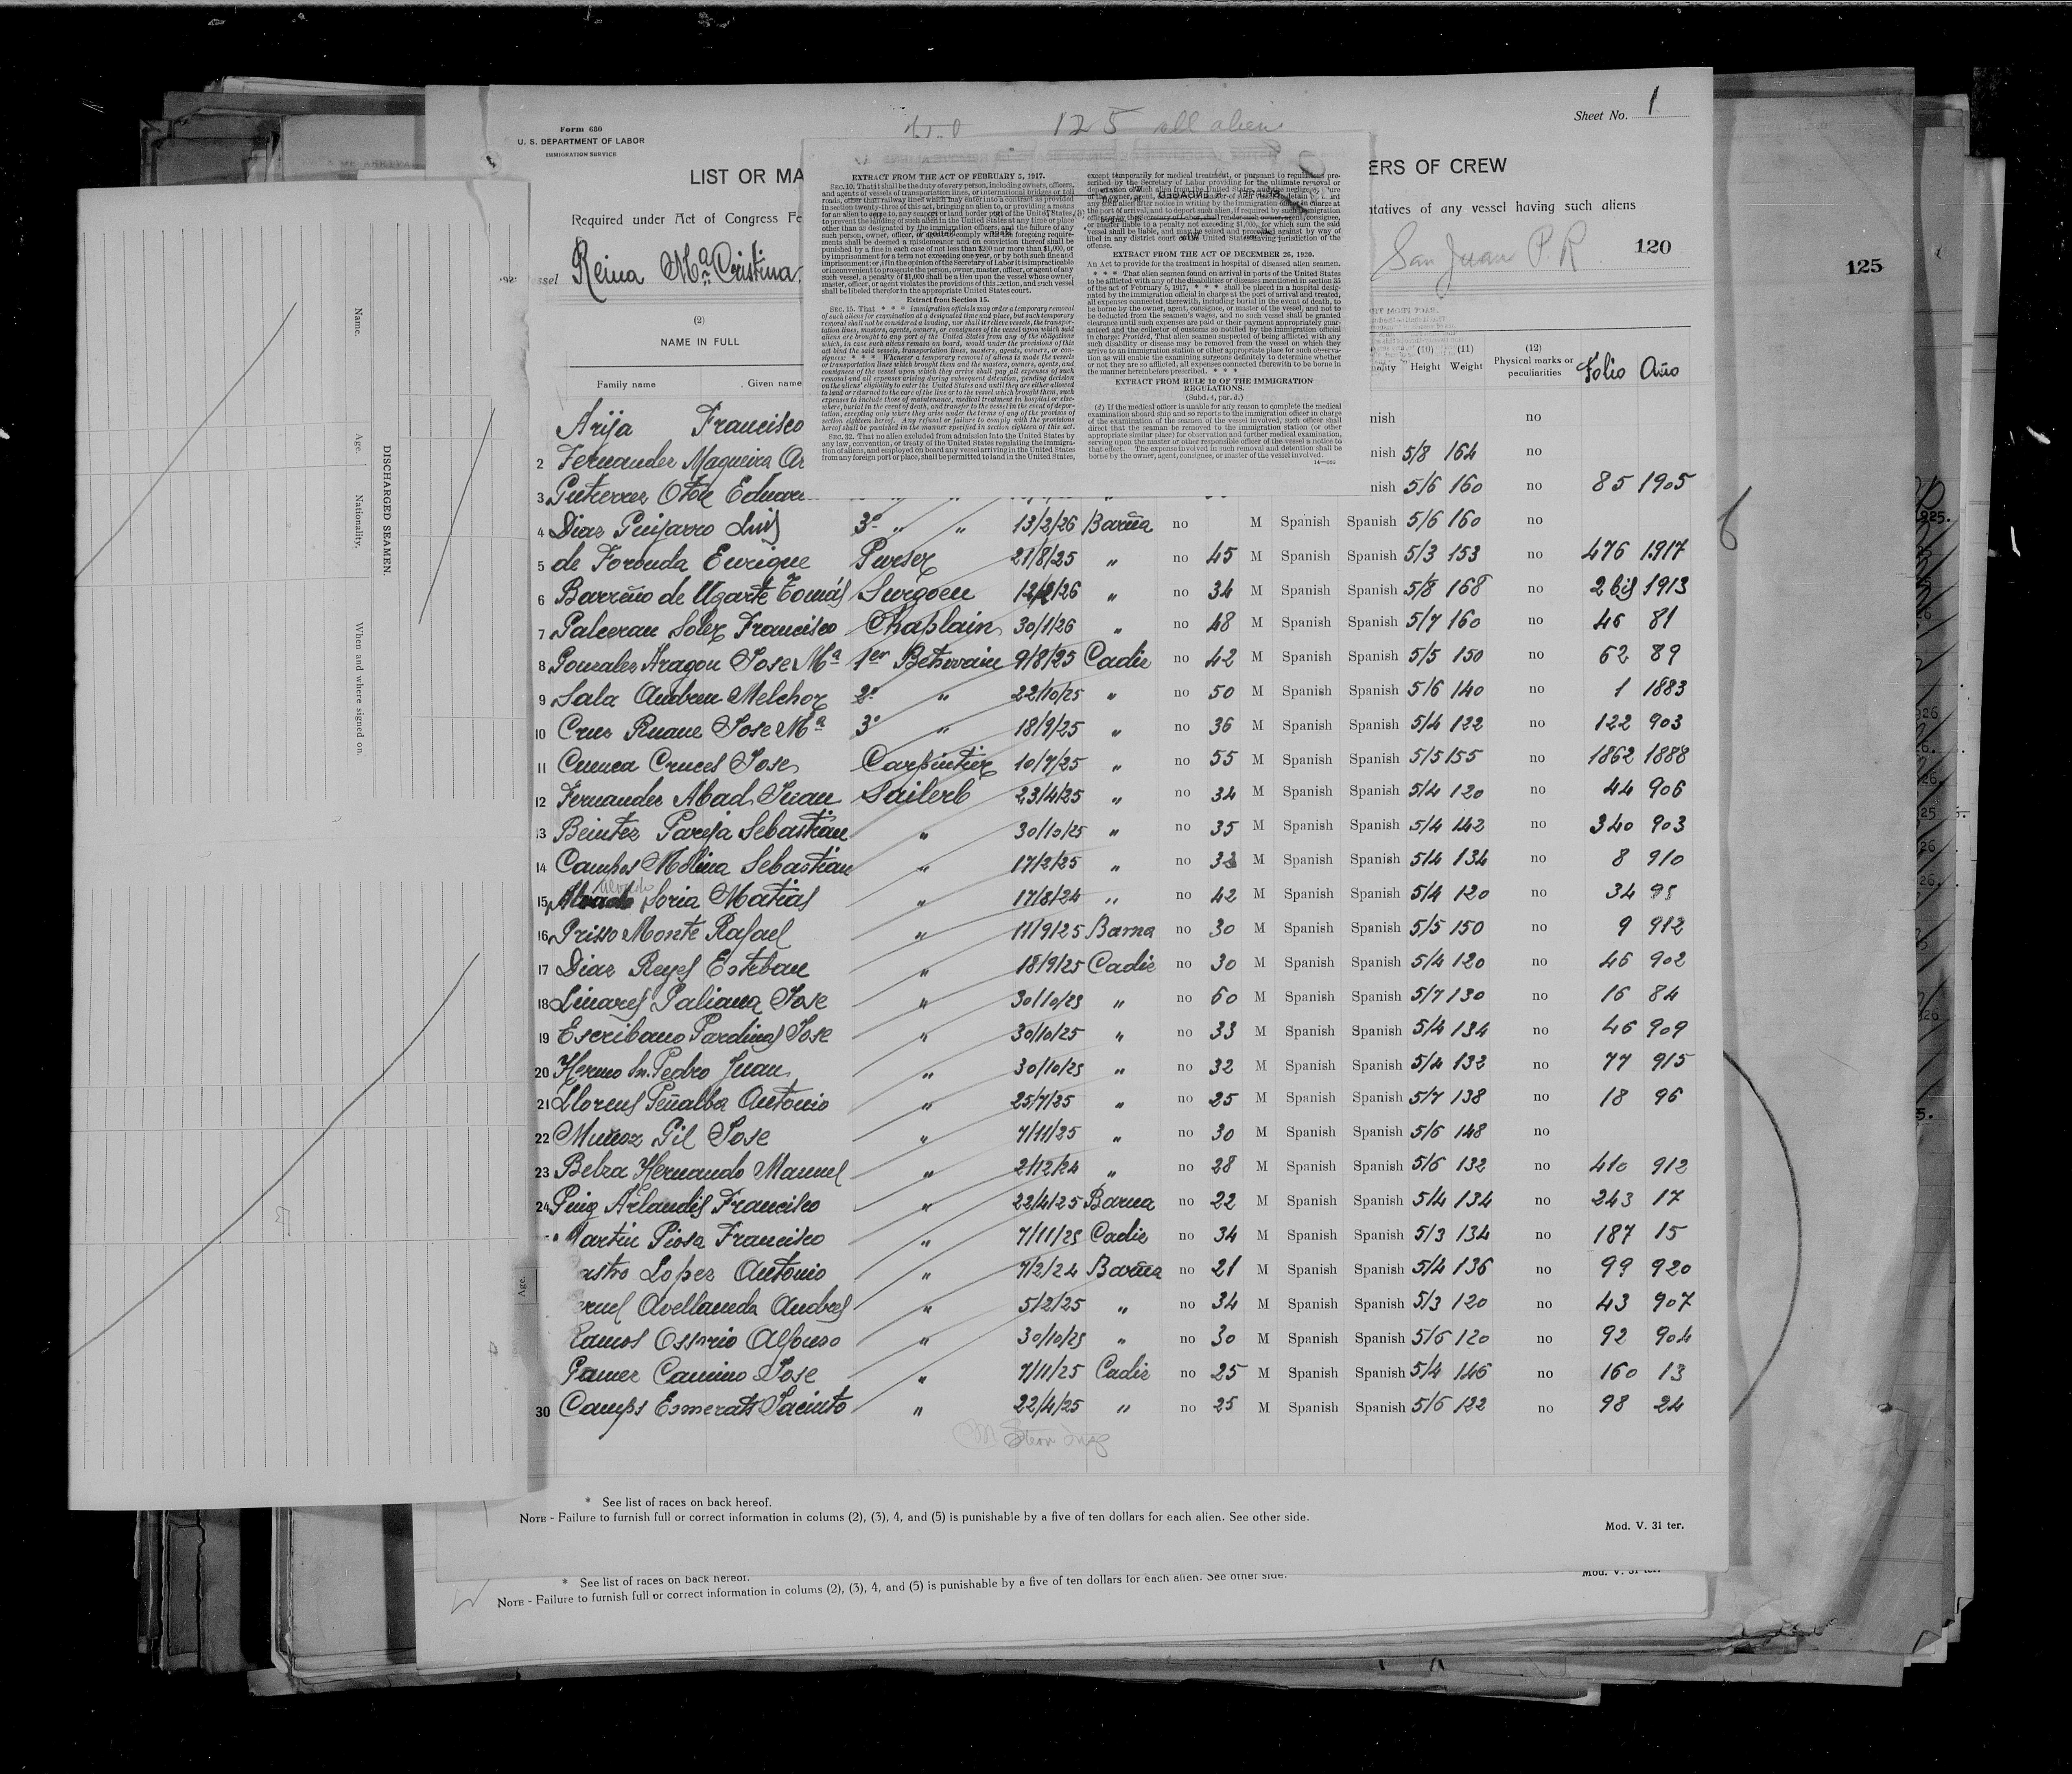 Form 680
U. S. DEPARTMENT OF LABOR
IMMIGRATION SERVICE
125 all alien
Sheet No. 1
LIST OR MA
ERS OF CREW
Required under Act of Congress Fe
ntatives of any vessel having such aliens
ssel Reina Ma Cristina,
San Juan P. R
120
125
(2)
NAME IN FULL
Family name
Given name
(10) Height
(11) Weight
(12) Physical marks or peculiarities
Folio Año
EXTRACT FROM THE ACT OF FEBRUARY 5, 1917.
SEC. 10. That it shall be the duty of every person, including owners, officers,
and agents of vessels of transportation lines, or international bridges or toll
roads, other than railway lines which may enter into a contract as provided
in section twenty-three of this act, bringing an alien to, or providing a means
for an alien to come to, any seaport or land border port of the United States,
to prevent the landing of such alien in the United States at any time or place
other than as designated by the immigration officers, and the failure of any
such person, owner, officer, or agent to comply with the foregoing require-
ments shall be deemed a misdemeanor and on conviction thereof shall be
punished by a fine in each case of not less than $200 nor more than $1,000, or
by imprisonment for a term not exceeding one year, or by both such fine and
imprisonment; or, if in the opinion of the Secretary of Labor it is impracticable
or inconvenient to prosecute the person, owner, master, officer, or agent of any
such vessel, a penalty of $1,000 shall be a lien upon the vessel whose owner,
master, officer, or agent violates the provisions of this section, and such vessel
shall be libeled therefor in the appropriate United States court.
Extract from Section 15.
SEC. 15. That * * * immigration officials may order a temporary removal
of such aliens for examination at a designated time and place, but such temporary
removal shall not be considered a landing, nor shall it relieve vessels, the transpor-
tation lines, masters, agents, owners, or consignees of the vessel upon which said
aliens are brought to any port of the United States from any of the obligations
which, in case such aliens remain on board, would under the provisions of this
act bind the said vessels, transportation lines, masters, agents, owners, or con-
signees: * * * Whenever a temporary removal of aliens is made the vessels
or transportation lines which brought them and the masters, owners, agents, and
consignees of the vessel upon which they arrive shall pay all expenses of such
removal and all expenses arising during subsequent detention, pending decision
on the aliens' eligibility to enter the United States and until they are either allowed
to land or returned to the care of the line or to the vessel which brought them, such
expenses to include those of maintenance, medical treatment in hospital or else-
where, burial in the event of death, and transfer to the vessel in the event of depor-
tation, excepting only where they arise under the terms of any of the provisos of
section eighteen hereof. Any refusal or failure to comply with the provisions
hereof shall be punished in the manner specified in section eighteen of this act.
SEC. 32. That no alien excluded from admission into the United States by
any law, convention, or treaty of the United States regulating the immigra-
tion of aliens, and employed on board any vessel arriving in the United States
from any foreign port or place, shall be permitted to land in the United States,
except temporarily for medical treatment, or pursuant to regulations pre-
scribed by the Secretary of Labor providing for the ultimate removal or
EXTRACT FROM THE ACT OF DECEMBER 26, 1920.
An Act to provide for the treatment in hospital of diseased alien seamen.
* * * That alien seamen found on arrival in ports of the United States
to be afflicted with any of the disabilities or diseases mentioned in section 35
of the act of February 5, 1917, * * * shall be placed in a hospital desig-
nated by the immigration official in charge at the port of arrival and treated,
all expenses connected therewith, including burial in the event of death, to
be borne by the owner, agent, consignee, or master of the vessel, and not to
be deducted from the seamen's wages, and no such vessel shall be granted
clearance until such expenses are paid or their payment appropriately guar-
anteed and the collector of customs so notified by the immigration official
in charge: Provided, That alien seamen suspected of being afflicted with any
such disability or disease may be removed from the vessel on which they
arrive to an immigration station or other appropriate place for such observa-
tion as will enable the examining surgeons definitely to determine whether
or not they are so afflicted, all expenses connected therewith to be borne in
the manner hereinbefore prescribed. * * *
EXTRACT FROM RULE 10 OF THE IMMIGRATION
REGULATIONS.
(Subd. 4, par. d.)
(d) If the medical officer is unable for any reason to complete the medical
examination aboard ship and so reports to the immigration officer in charge
of the examination of the seamen of the vessel involved, such officer shall
direct that the seaman be removed to the immigration station (or other
appropriate similar place) for observation and further medical examination,
serving upon the master or other responsible officer of the vessel a notice to
that effect. The expense involved in such removal and detention shall be
borne by the owner, agent, consignee, or master of the vessel involved.
Name.
Age.
Nationality.
When and where signed on.
DISCHARGED SEAMEN.
Age.
Arija Francisco nish no
2 Fernandez Maqueira Ar nish 5/8 164 no
3 Gutierrez Otou Eduar nish 5/6 160 no 85 1905
4 Diaz Guijarro Luis 3º " " 13/2/26 Barña no M Spanish Spanish 5/6 160 no
5 de Foronda Enrique Purser 21/8/25 " no 45 M Spanish Spanish 5/3 153 no 476 1917
6 Barreño de Ugarte Tomás Surgoen 12/2/26 " no 34 M Spanish Spanish 5/8 168 no 2 bis 1913
7 Palceran Soler Francisco Chaplain 30/1/26 " no 48 M Spanish Spanish 5/7 160 no 46 81
8 Gonzalez Aragon Jose Ma 1er Betswain 9/8/25 Cadiz no 42 M Spanish Spanish 5/5 150 no 62 89
9 Sala Andreu Melchor 2º " 22/10/25 " no 50 M Spanish Spanish 5/6 140 no 1 1883
10 Cruz Ruane Jose Ma 3º " 18/9/25 " no 36 M Spanish Spanish 5/4 122 no 122 903
11 Cuenca Cruces Jose Carpintier 10/7/25 " no 55 M Spanish Spanish 5/5 155 no 1862 1888
12 Fernandez Abad Juan Sailerb 23/4/25 " no 34 M Spanish Spanish 5/4 120 no 44 906
13 Beintez Pareja Sebastian " 30/10/25 " no 35 M Spanish Spanish 5/4 142 no 340 903
14 Campos Molina Sebastian " 17/2/25 " no 33 M Spanish Spanish 5/4 134 no 8 910
15 Soria Matias " 17/8/24 " no 42 M Spanish Spanish 5/4 120 no 34 95
16 Grisso Monte Rafael " 11/9/25 Barna no 30 M Spanish Spanish 5/5 150 no 9 912
17 Diaz Reyes Esteban " 18/9/25 Cadiz no 30 M Spanish Spanish 5/4 120 no 46 902
18 Linares Galiana Jose " 30/10/25 " no 60 M Spanish Spanish 5/7 130 no 16 84
19 Escribano Pardines Jose " 30/10/25 " no 33 M Spanish Spanish 5/4 134 no 46 909
20 Hermo Sn. Pedro Juan " 30/10/25 " no 32 M Spanish Spanish 5/4 132 no 77 915
21 Llorens Peñalba Antonio " 25/7/25 " no 25 M Spanish Spanish 5/7 138 no 18 96
22 Muñoz Gil Jose " 7/11/25 " no 30 M Spanish Spanish 5/6 148 no
23 Belza Hernando Manuel " 2/12/24 " no 28 M Spanish Spanish 5/6 132 no 410 912
24 Puig Arlandis Francisco " 22/4/25 Barna no 22 M Spanish Spanish 5/4 134 no 243 17
Martin Piosa Francisco " 7/11/25 Cadiz no 34 M Spanish Spanish 5/3 134 no 187 15
astro Lopez Antonio " 7/2/24 Barña no 21 M Spanish Spanish 5/4 136 no 99 920
eruel Avellaneda Andres " 5/2/25 " no 34 M Spanish Spanish 5/3 120 no 43 907
Ramos Ossorio Alfonso " 30/10/25 " no 30 M Spanish Spanish 5/6 120 no 92 904
Gamez Camino Jose " 7/11/25 Cadiz no 25 M Spanish Spanish 5/4 146 no 160 13
30 Camps Esmerats Jacinto " 22/4/25 " no 25 M Spanish Spanish 5/6 122 no 98 24
* See list of races on back hereof.
NOTE - Failure to furnish full or correct information in colums (2), (3), 4, and (5) is punishable by a five of ten dollars for each alien. See other side.
Mod. V. 31 ter.
* See list of races on back hereof.
NOTE - Failure to furnish full or correct information in colums (2), (3), 4, and (5) is punishable by a five of ten dollars for each alien. See other side.
Mod. V. 31 ter.